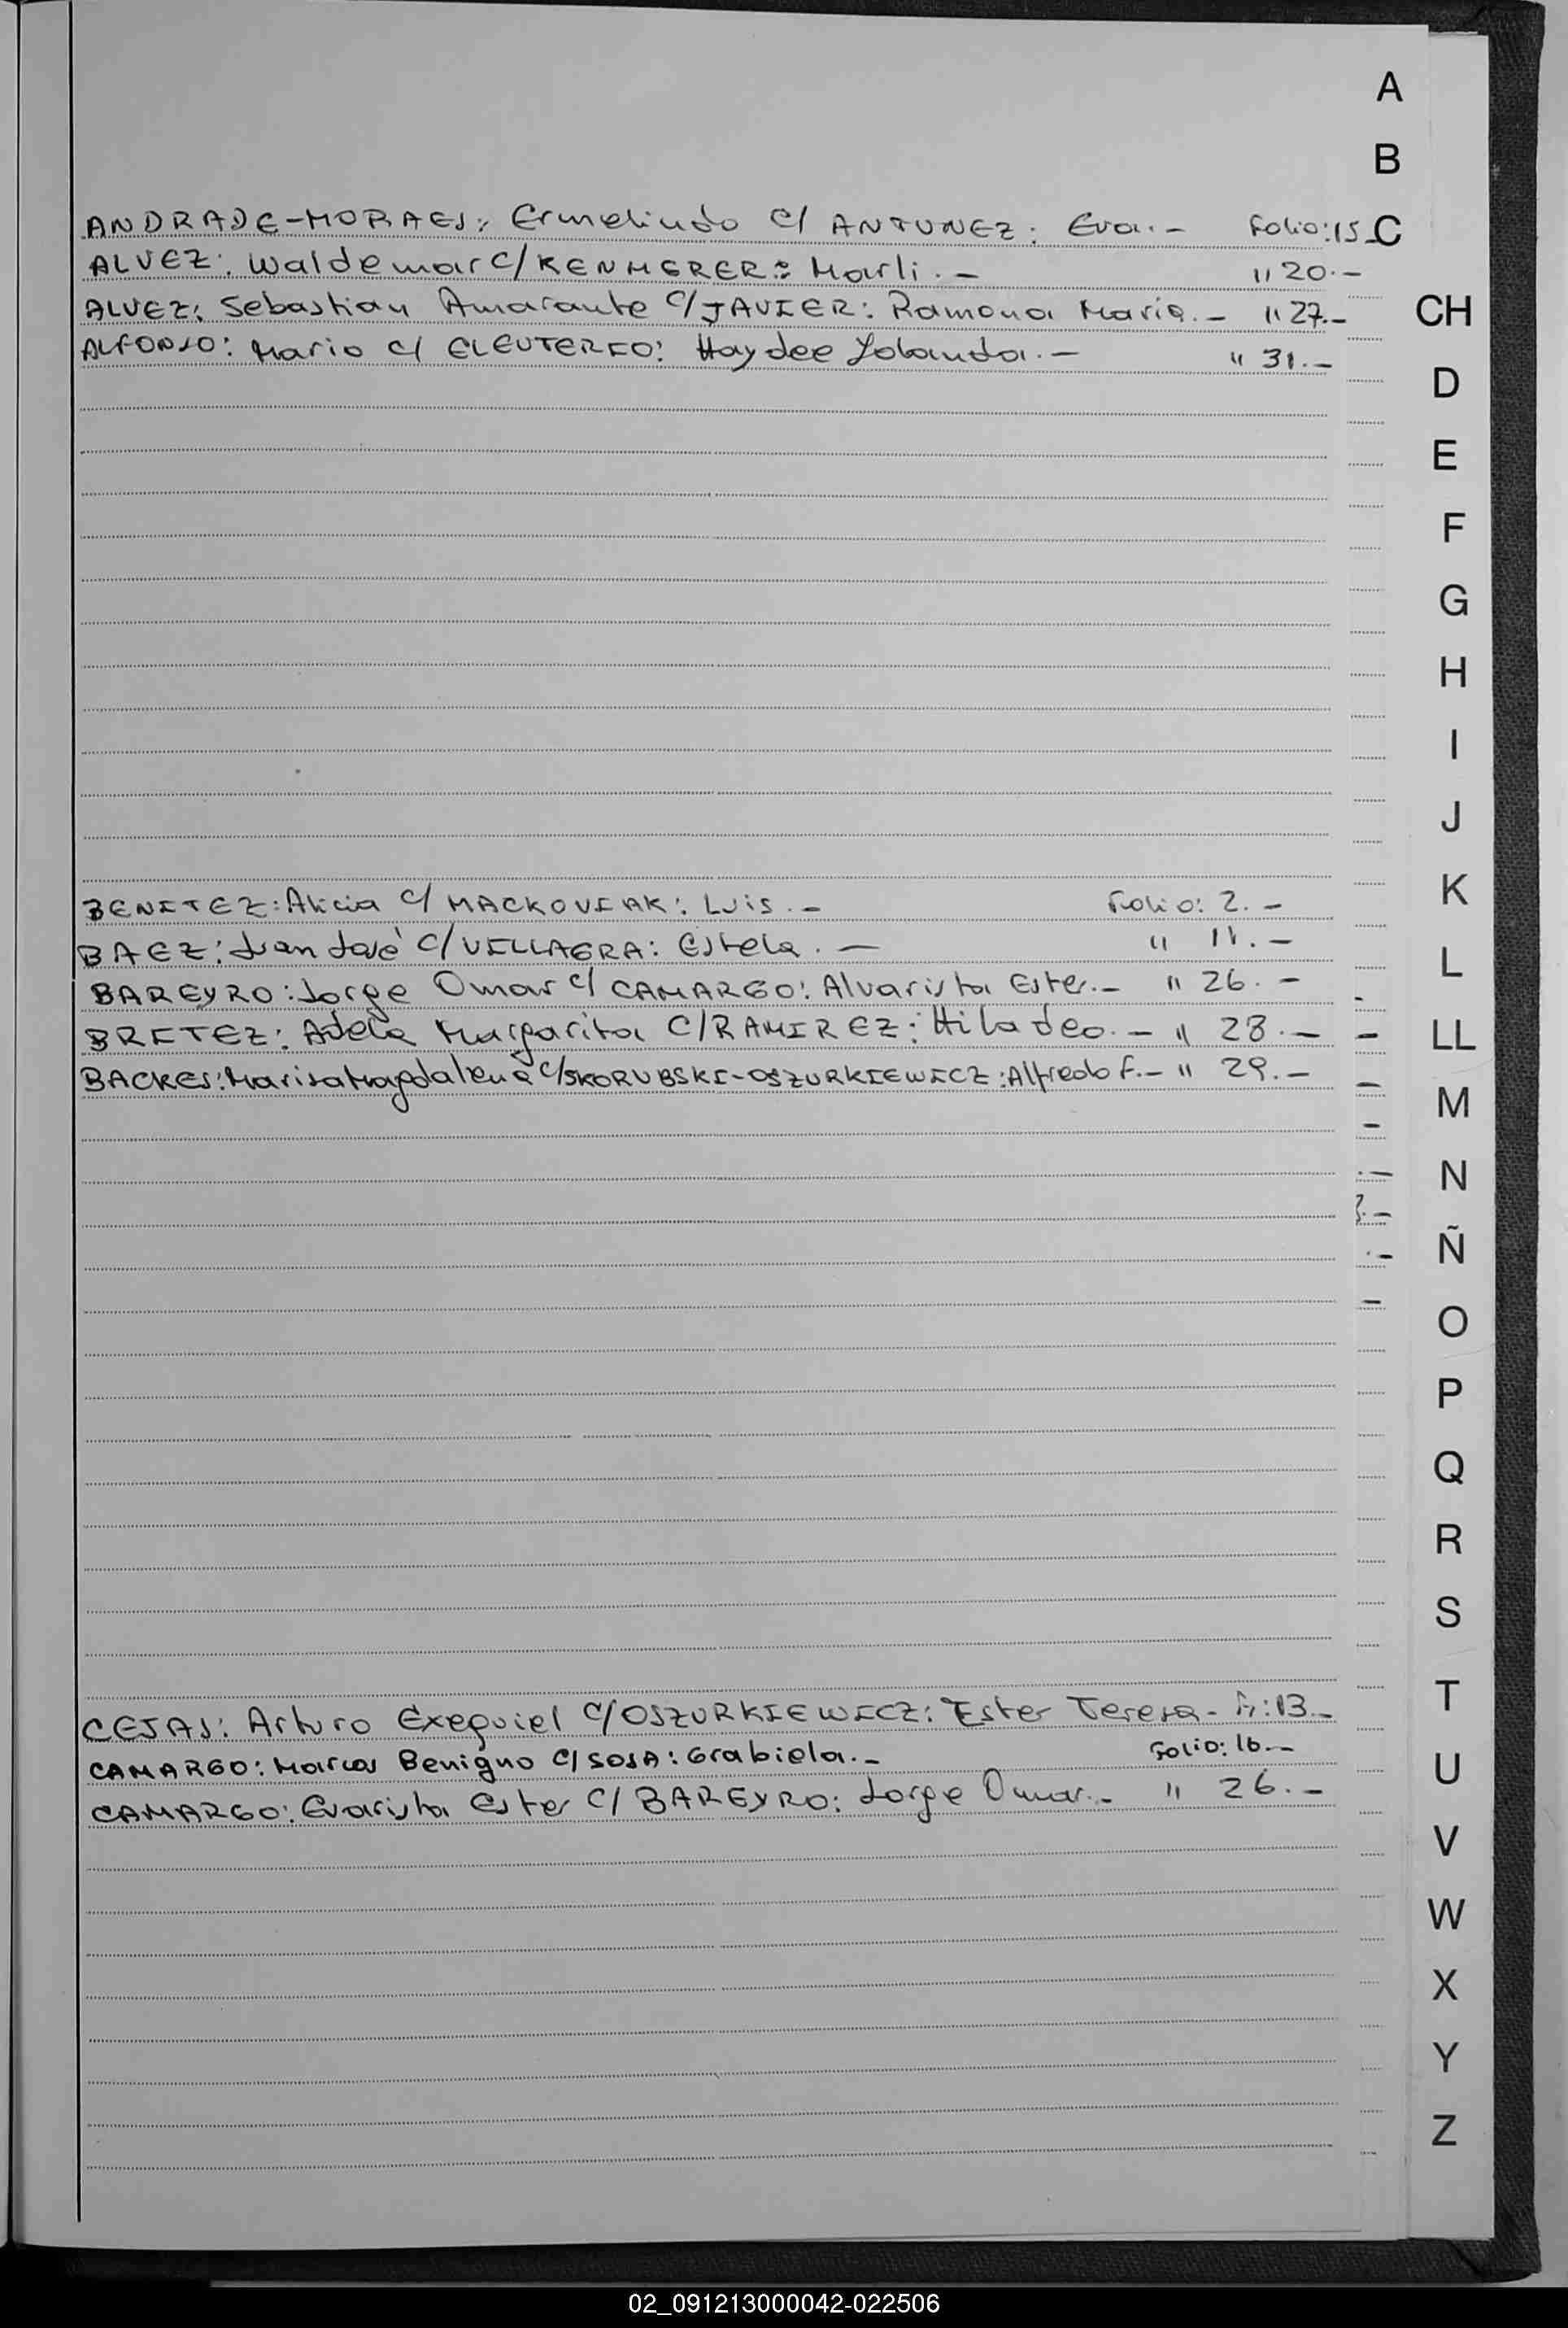 A
B
ANDRADE-MORAES: Ermelindo c/ ANTUNEZ: Eva.- Folio:15.- C
ALVEZ: Waldemar c/ KENMERER: Marli.- " 20.-
ALVEZ: Sebastian Amarante c/ JAVIER: Ramona Maria.- " 27.- CH
ALFONSO: Mario c/ ELEUTERIO: Haydee Yolanda.- " 31.-
D
E
F
G
H
I
J
K
BENITEZ: Alicia c/ MACKOVIAK: Luis.- Folio: 2.-
BAEZ: Juan José c/ VILLAGRA: Estela.- " 11.- L
BAREYRO: Jorge Omar c/ CAMARGO: Alvarista Ester.- " 26.-
BRITEZ: Adela Margarita c/ RAMIREZ: Hiladeo.- " 28.- LL
BACKES: Marisa Magdalena c/ SKORUBSKI-OSZURKIEWICZ: Alfredo F.- " 29.-
M
N
Ñ
O
P
Q
R
S
T
CEJAS: Arturo Exequiel c/ OSZURKIEWICZ: Ester Teresa.- F:13.-
CAMARGO: Marcos Benigno c/ SOSA: Grabiela.- Folio: 16.-
U
CAMARGO: Evarista Ester c/ BAREYRO: Jorge Omar.- " 26.-
V
W
X
Y
Z
02_091213000042-022506